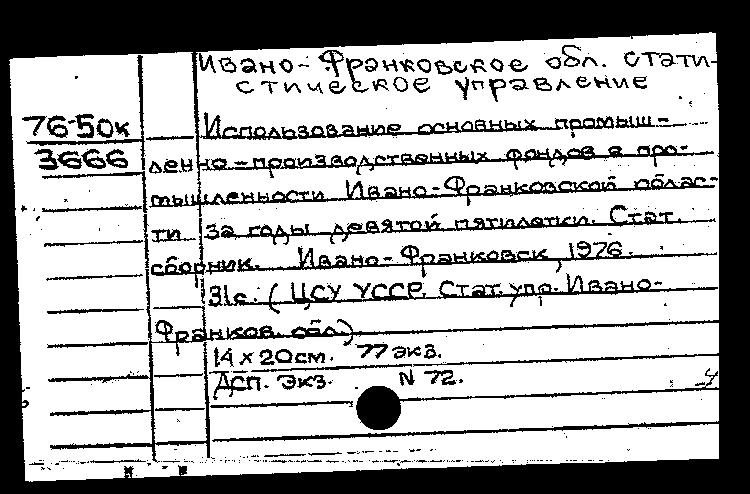 Ивано-Франковское обл. стати-
стическое управление
76-50к
3666
Использование основных промыш-
ленно-производственных фондов в про-
мышленности Ивано-Франковской облас-
ти за годы девятой пятилетки. Стат.
сборник. Ивано-Франковск, 1976.
31с. (ЦСУ УССР. Стат. упр. Ивано-
Франков. обл.)
14 x 20см. 77 экз.
ДСП. Экз. N 72.